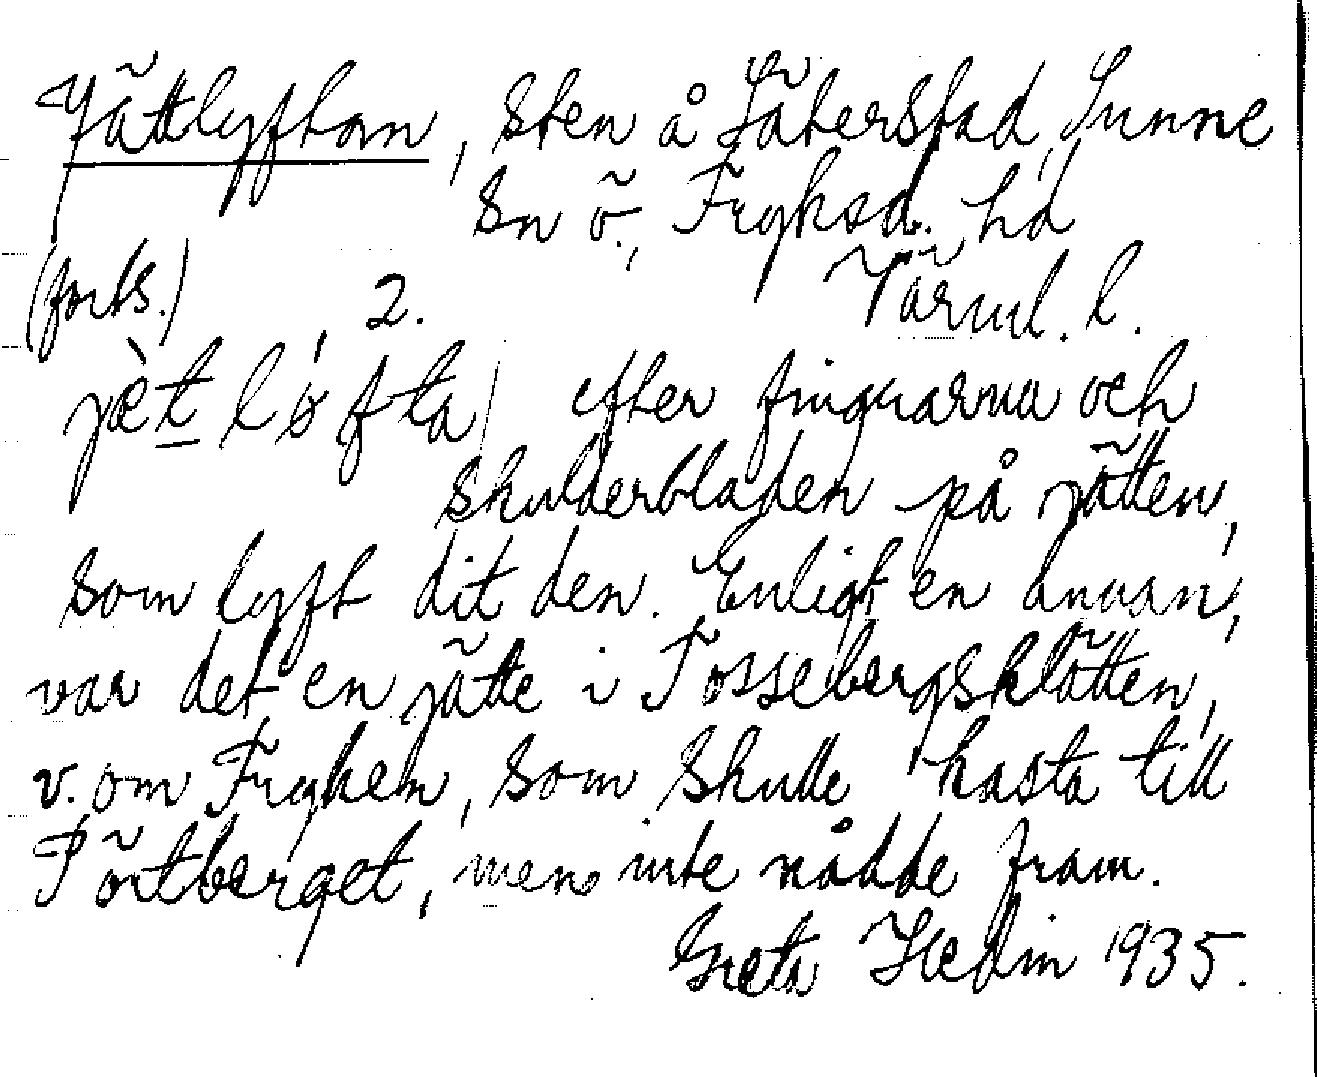 Jättlyftan, sten å Såterstad, Sunne
sn ö., Fryksd. hd
(forts.) 2. Värml. l.
jæ̀t lǿfta, efter fingrarna och
skulderbladen på jätten,
som lyft dit den. Enligt en annan,
var det en jätte i Tossebergsklätten,
v. om Fryken, som skulle kasta till
Törtberget, men inte nådde fram.
Greta Hedin 1935.